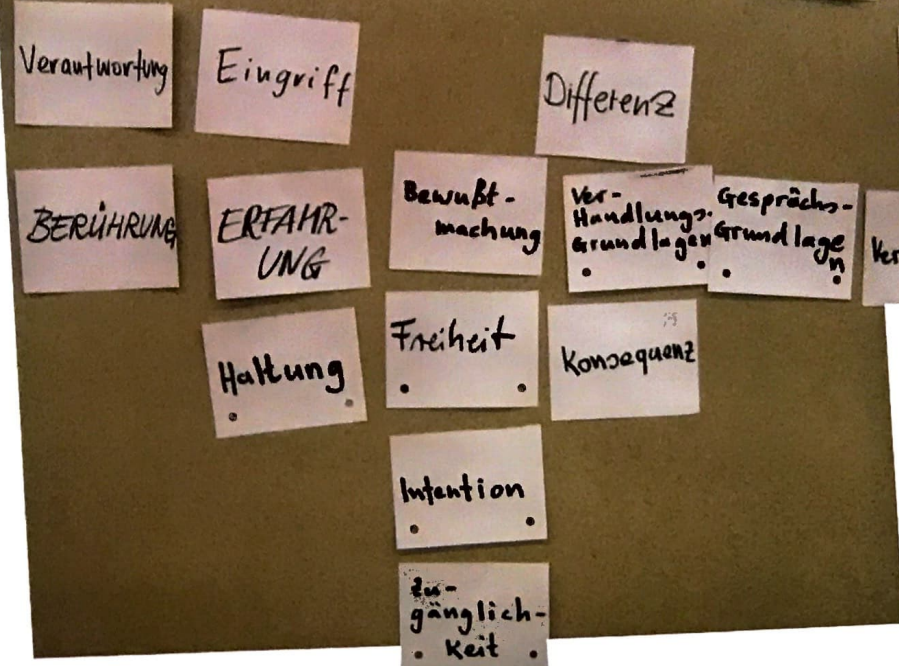 Verantwortung
Eingriff
Differenz
BERÜHRUNG
ERFAHR-
UNG
Bewußt-
machung
Ver-
Handlungs-
Grundlagen
Gesprächs-
Grundlage
n
Ver
Haltung
Freiheit
Konsequenz
Intention
Zu-
gänglich-
Keit